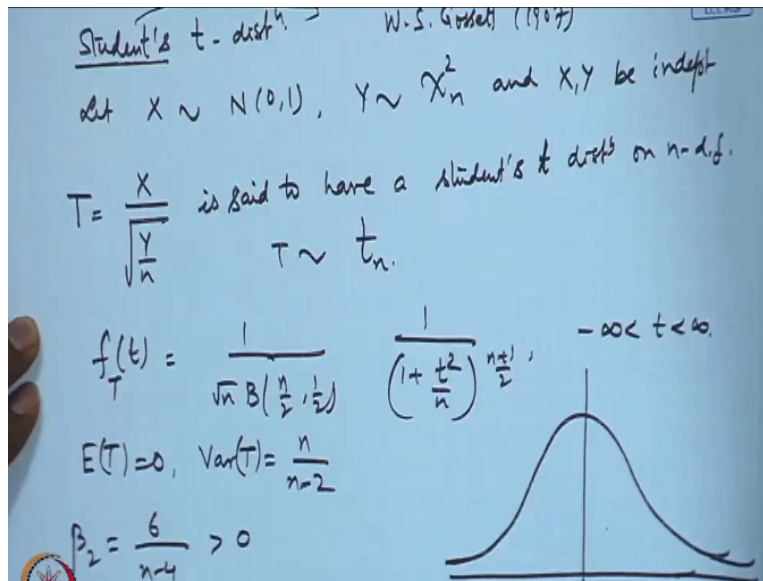 Student's t-distⁿ. W.S. Gossett (1907)
Let X ~ N(0,1), Y ~ χ²_n and X,Y be indept
T = X / √(Y/n) is said to have a student's t distⁿ on n-d.f.
T ~ t_n.
f_T(t) = 1 / (√n B(n/2, 1/2)) 1 / (1 + t²/n)^((n+1)/2), -∞ < t < ∞.
E(T)=0, Var(T) = n / (n-2)
β₂ = 6 / (n-4) > 0